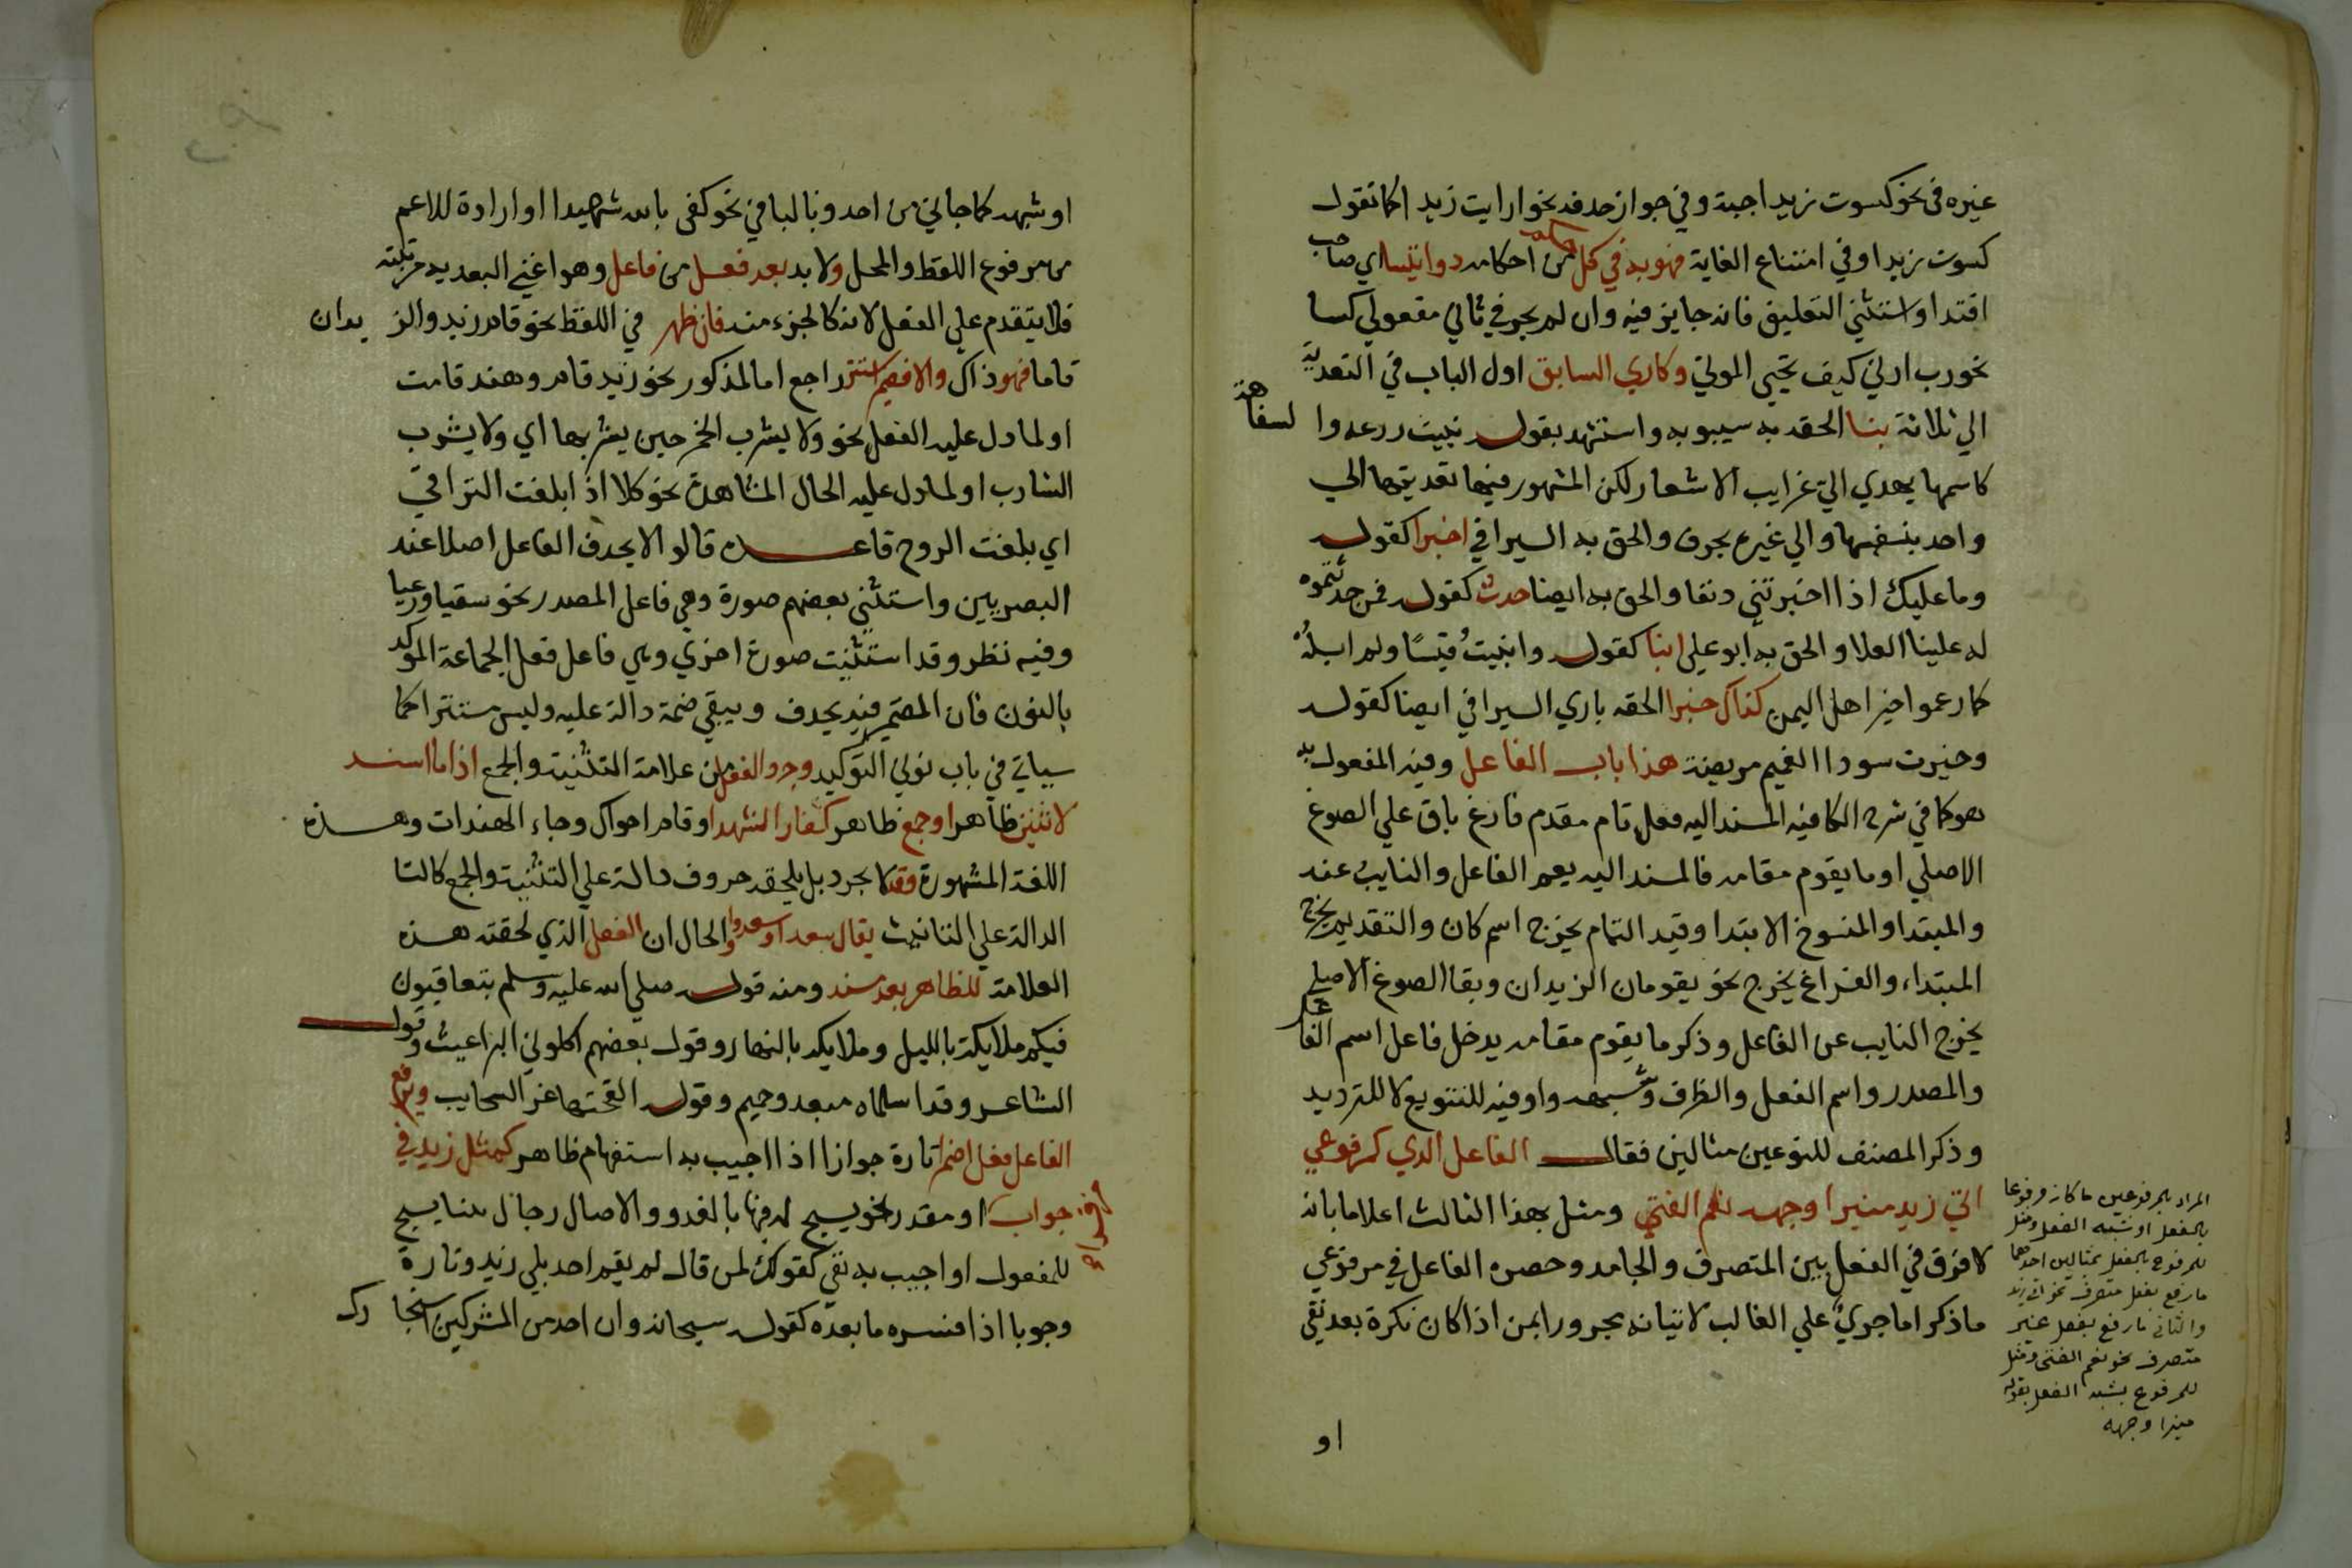 غيره في نحو كسوت زيدا جبة وفي جواز حذفه نحو ارايت زيدا كما تقول
كسوت زيدا وفي امتناع الغاية فهو به في كل حكم من احكامه ذو ائتسا اي صاحب
اقتدا واستثني التعليق فانه جايز فيه وان لم يجز في ثاني مفعولي كسا
نحو رب ارني كيف تحيي الموتي وكاري السابق اول الباب في التعدية
الي ثلاثة نبا الحقه به سيبويه واستشهد بقوله نبيت زرعه والسفاهة
كاسمها يهدي الي غرايب الاشعار لكن المشهور فيها تعديتها الي
واحد بنفسها والي غيره بحرف والحق به السيرافي اخبرا كقوله
وما عليك اذا اخبرتني دنفا والحق به ايضا حدث كقوله فمن حدثتموه
له علينا العلا والحق به ابو علي انبا كقوله وانبيتُ قيسًا ولم ابلُهُ
كما زعموا خير اهل اليمن كذاك خبرا الحقه باري السيرافي ايضا كقوله
وخبرت سودا الغميم مريضة هذا باب الفاعل وفيه المفعول به
هو كما في شرح الكافيه المسند اليه فعل تام مقدم فارغ باق علي الصوغ
الاصلي او ما يقوم مقامه فالمسند اليه يعم الفاعل والنايب عنه
والمبتدا والمنسوخ الابتدا وقيد التمام يخرج اسم كان والتقديم يخرج
المبتداء والفراغ يخرج نحو يقومان الزيدان وبقا الصوغ الاصلي
يخرج النايب عن الفاعل وذكر ما يقوم مقامه يدخل فاعل اسم الفاعل
والمصدر واسم الفعل والظرف وشبهه واو فيه للتنويع لا للترديد
وذكر المصنف للنوعين مثالين فقال الفاعل الذي كمرفوعي
اتي زيد منيرا وجهه نعم الفتي ومثل بهذا الثالث اعلاما بانه
لا فرق في الفعل بين المتصرف والجامد وحصره الفاعل في مرفوعي
ما ذكر اما جريٌ علي الغالب لاتيانه مجرورا بمن اذا كان نكرة بعد نفي
المراد بالمرفوعين ما كان مرفوعا
بالفعل او شبه الفعل ومثل
للمرفوع بالفعل بمثالين احدهما
ما رفع بفعل متصرف نحو اتي زيد
والثاني ما رفع بفعل غير
متصرف نحو نعم الفتي ومثل
للمرفوع بشبه الفعل بقوله
منيرا وجهه
او
او شبهه كما جاني من احد وبالبا في نحو كفى بالله شهيدا او ارادة للاعم
من مرفوع اللفظ والمحل ولا بد بعد فعل من فاعل وهو اعني البعديه مرتبته
فلا يتقدم علي الفعل لانه كالجزء منه فان ظهر في اللفظ نحو قام زيد والزيدان
قاما فهو ذاك والا فضمير استتر راجع اما لمذكور نحو زيد قام وهند قامت
او لما دل عليه الفعل نحو ولا يشرب الخمر حين يشربها اي ولا يشرب
الشارب او لما دل عليه الحال المشاهدة نحو كلا اذا بلغت التراقي
اي بلغت الروح قاعدة قالوا لا يحذف الفاعل اصلا عند
البصريين واستثني بعضهم صورة وهي فاعل المصدر نحو سقيا ورعيا
وفيه نظر وقد استثنيت صورة اخري وهي فاعل فعل الجماعة الموكد
بالنون فان الضمير فيه يحذف ويبقي ضمة دالة عليه وليس مستترا كما
سياتي في باب نوني التوكيد وجرد الفعل من علامة التثنية والجمع اذا ما اسند
لاثنين ظاهر او جمع ظاهر كفاز الشهدا وقام اخواك وجاء الهندات وهذه
اللغة المشهورة وقد لا يجرد بل يلحقه حروف دالة علي التثنية والجمع كالتا
الدالة علي التانيث يقال سعدا وسعدوا والحال ان الفعل الذي لحقته هذه
العلامة للظاهر بعد مسند ومنه قوله صلي الله عليه وسلم يتعاقبون
فيكم ملايكة بالليل وملايكة بالنهار وقول بعضهم اكلوني البراغيث وقول
الشاعر وقد اسلماه مبعد وحميم وقوله القحتها غر السحايب ويرفع
الفاعل فعل اضمرا تارة جوازا اذا اجيب به استفهام ظاهر كمثل زيد في
جواب من قرا او مقدر نحو يسبح له فيها بالغدو والاصال رجال ببنا يسبح
للمفعول او اجيب به نفي كقولك لمن قال لم يقم احد بلي زيد وتارة
وجوبا اذا فسره ما بعده كقوله سبحانه وان احد من المشركين استجارك